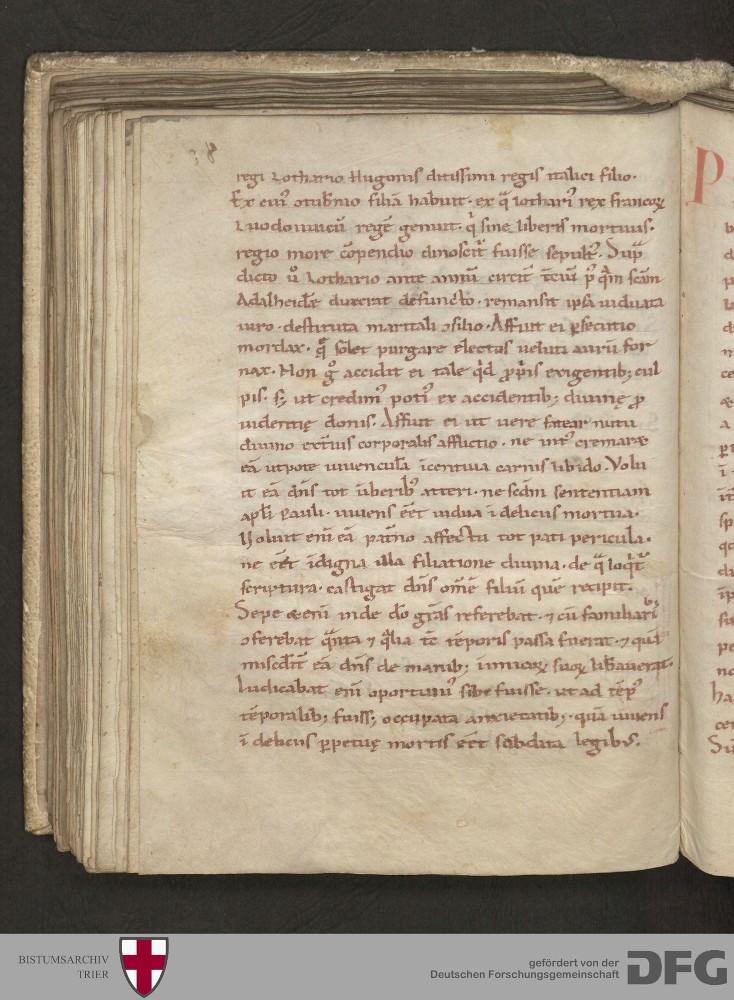 regi Lothario hugonis ditissimi regis italici filio.
Ex cuiꝰ ɔtubnio filiā habuit. ex q̄ lothariꝰ rex francoꝝ
Luodouuicū regē genuit. q̇ sine liberis mortuus.
regio more cōpendio dinoscit̄ fuisse sepultꝰ. Sup̄
dicto ů Lothario ante annū circit̄ t̄ciū pꝰ q̄m s̄cam
Adalheidā duxerat defuncto. remansit ipsa uiduata
uiro. destituta maritali ɔsilio. Affuit ei ꝑsecutio
mordax. q̄ solet purgare electos ueluti aurū for
nax. Non gͦ accidit ei tale q̇d ꝓpriis exigentibꝫ cul
pis. sꝫ ut credimꝰ potiꝰ ex accidentibꝫ diuinę ꝓ
uidentię donis. Affuit ei ut uere fatear nutu
diuino ext̄ius corporalis afflictio. ne intꝰ cremaret
eā utpote iuuenculā īcentiua carnis libido. Volu
it eā dn̄s tot ūberibꝰ atteri. ne scdm sententiam
apl̄i pauli. uiuens eēt uidua ī deliciis mortua.
Voluit enī eā pat̄no affectu tot pati pericula.
ne eēt īdigna illa filiatione diuina. de q̄ loqͥt̄
scriptura. castigat dn̄s om̄e filiū quē recipit.
Sepe &enī inde dō gr̄as referebat. ⁊ cū familiaribꝰ
ɔferebat q̄nta ⁊ q̄lia tc̄ tēporis passa fuerat. ⁊ quā
misc̄dit̄ eā dn̄s de manibꝫ inimicoꝝ suoꝝ lib̄auerat.
Iudicabat enī oportuniꝰ sibi fuisse. ut ad tēpꝰ
tēporalibꝫ fuissꝫ occupata anxietatibꝫ. quā uiuens
ī deliciis ꝑpetuę mortis eēt subdita legibus.
P
BISTUMSARCHIV
TRIER
gefördert von der
Deutschen Forschungsgemeinschaft
DFG